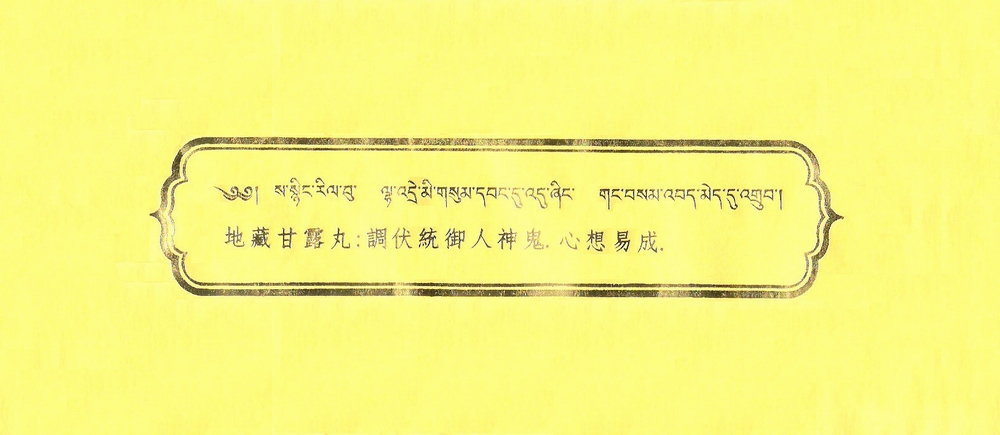 ༄༅། ས་སྙིང་རིལ་བུ་ ལྷ་འདྲེ་མི་གསུམ་དབང་དུ་འདུ་ཞིང་ གང་བསམ་འབད་མེད་དུ་འགྲུབ།
地藏甘露丸:調伏統御人神鬼.心想易成.